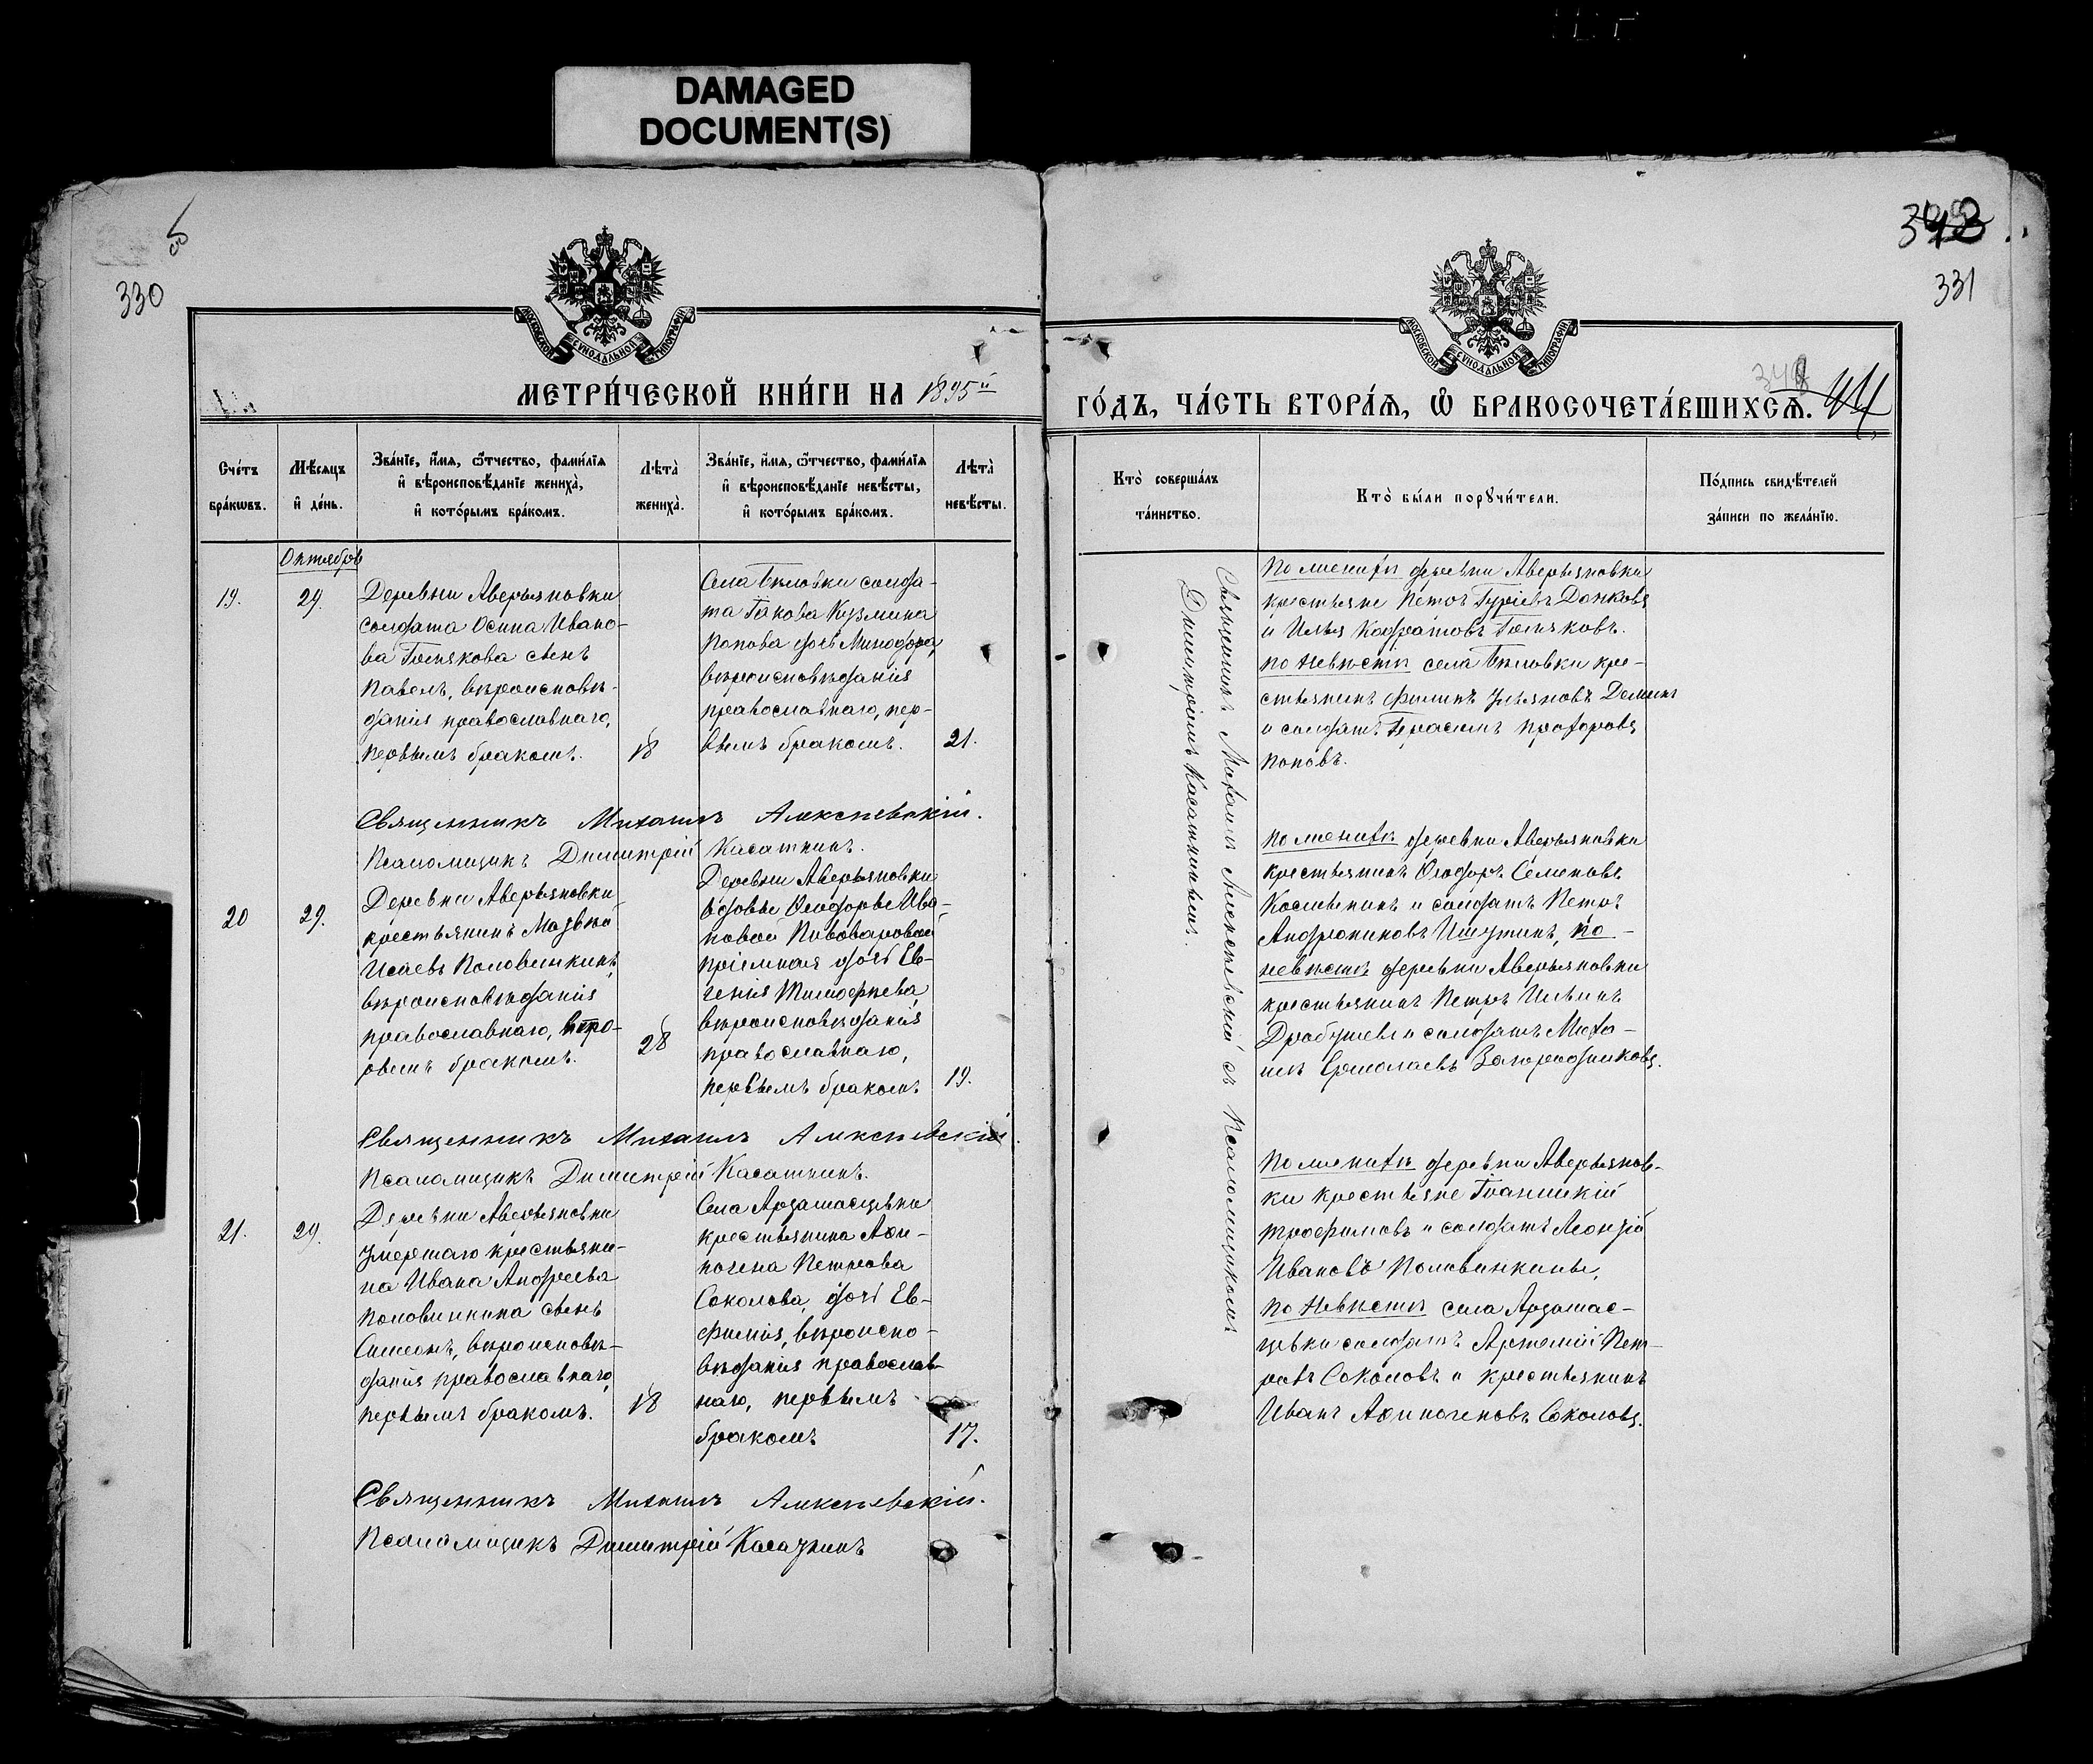 DAMAGED
DOCUMENT(S)
330
МЕТРИ́ЧЕСКОЙ КНИ́ГИ НА 1895й
Сче́тъ
бра́кѡвъ.
Мѣ́сяцъ
и҆ де́нь.
Зва́нїе, и҆́мѧ, ѻ҆́тчество, фамѝлїѧ
и҆ вѣроисповѣ́данїе жениха̀,
и҆ кото́рымъ бра́комъ.
Лѣта̀
жениха̀.
Зва́нїе, и҆́мѧ, ѻ҆́тчество, фамѝлїѧ
и҆ вѣроисповѣ́данїе невѣ́сты,
и҆ кото́рымъ бра́комъ.
Лѣта̀
невѣ́сты.
Октябрь
19.
29.
Деревни Аверьяновки
солдата Осипа Ивано-
ва сынъ
Павелъ, вѣроисповѣ-
данія православнаго,
первымъ бракомъ.
18
Села солда-
та Іакова Кузьмина
Попова дочь Минодора,
вѣроисповѣданія
православнаго, пер-
вымъ бракомъ.
21.
Священникъ Михаилъ Алексѣевскій.
Псаломщикъ Димитрій Касаткинъ.
20
29.
Деревни Аверьяновки
крестьянинъ Матвѣй
Исаевъ Половинкинъ,
вѣроисповѣданія
православнаго, вто-
рымъ бракомъ.
28
Деревни Аверьяновки
вдовы Ѳеодоры Ива-
новой Пивоваровой
пріемная дочь Ев-
генія Тимофѣева,
вѣроисповѣданія
православнаго,
первымъ бракомъ
19.
Священникъ Михаилъ Алексѣевскій.
Псаломщикъ Димитрій Касаткинъ.
21.
29.
Деревни Аверьяновки
умершаго крестьяни-
на Ивана Андреева
Половинкина сынъ
Симеонъ, вѣроисповѣ-
данія православнаго,
первымъ бракомъ.
18
Села Ардамасцевки
крестьянина Аѳи-
ногена Петрова
Соколова, дочь Ев-
фимія, вѣроиспо-
вѣданія православ-
наго, первымъ
бракомъ
17.
Священникъ Михаилъ Алексѣевскій.
Псаломщикъ Димитрій Касаткинъ
331
ГО́ДЪ, ЧА́СТЬ ВТОРА́Ѧ, Ѡ҆ БРАКОСОЧЕТА́ВШИХСѦ.
Кто̀ соверша́лъ
та́инство.
Кто̀ бы́ли порꙋчи́тели.
По́дпись свидѣ́телей
за́писи по жела́нїю.
Священникъ Михаилъ Алексѣевскій съ псаломщикомъ
Димитріемъ Касаткинымъ.
По женихѣ деревни Аверьяновки
крестьяне Петръ Гуріевъ Донковъ
и Илья
по невѣстѣ села кре-
стьянинъ Филипъ Ульяновъ
и солдатъ Герасимъ Прохоровъ
Поповъ.
По женихѣ деревни Аверьяновки
крестьянинъ Ѳеодоръ Семеновъ
и солдатъ Петръ
Андрониковъ Ишутинъ, по
невѣстѣ деревни Аверьяновки
крестьянинъ Петръ Ильинъ
и солдатъ Миха-
илъ Ермолаевъ Загородниковъ.
По женихѣ деревни Аверьянов-
ки крестьяне Іоанникій
Трофимовъ и солдатъ Леонтій
Ивановъ Половинкины,
по невѣстѣ села Ардамас-
цевки солдатъ Артемій Пет-
ровъ Соколовъ и крестьянинъ
Иванъ Аѳиногеновъ Соколовъ.